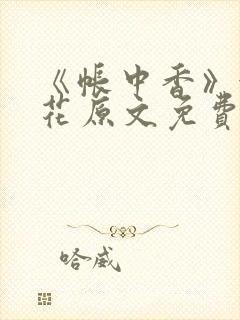 《帐中香》
花原文免費
哈威